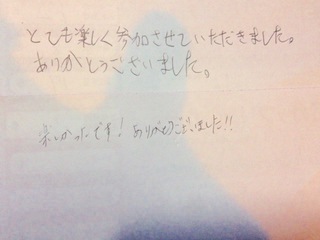 とても楽しく参加させていただきました。
ありがとうございました。
楽しかったです! ありがとうございました!!